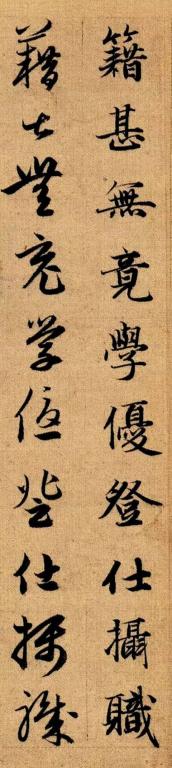 籍甚無竟學優登仕攝職
籍甚無竟学優登仕攝職